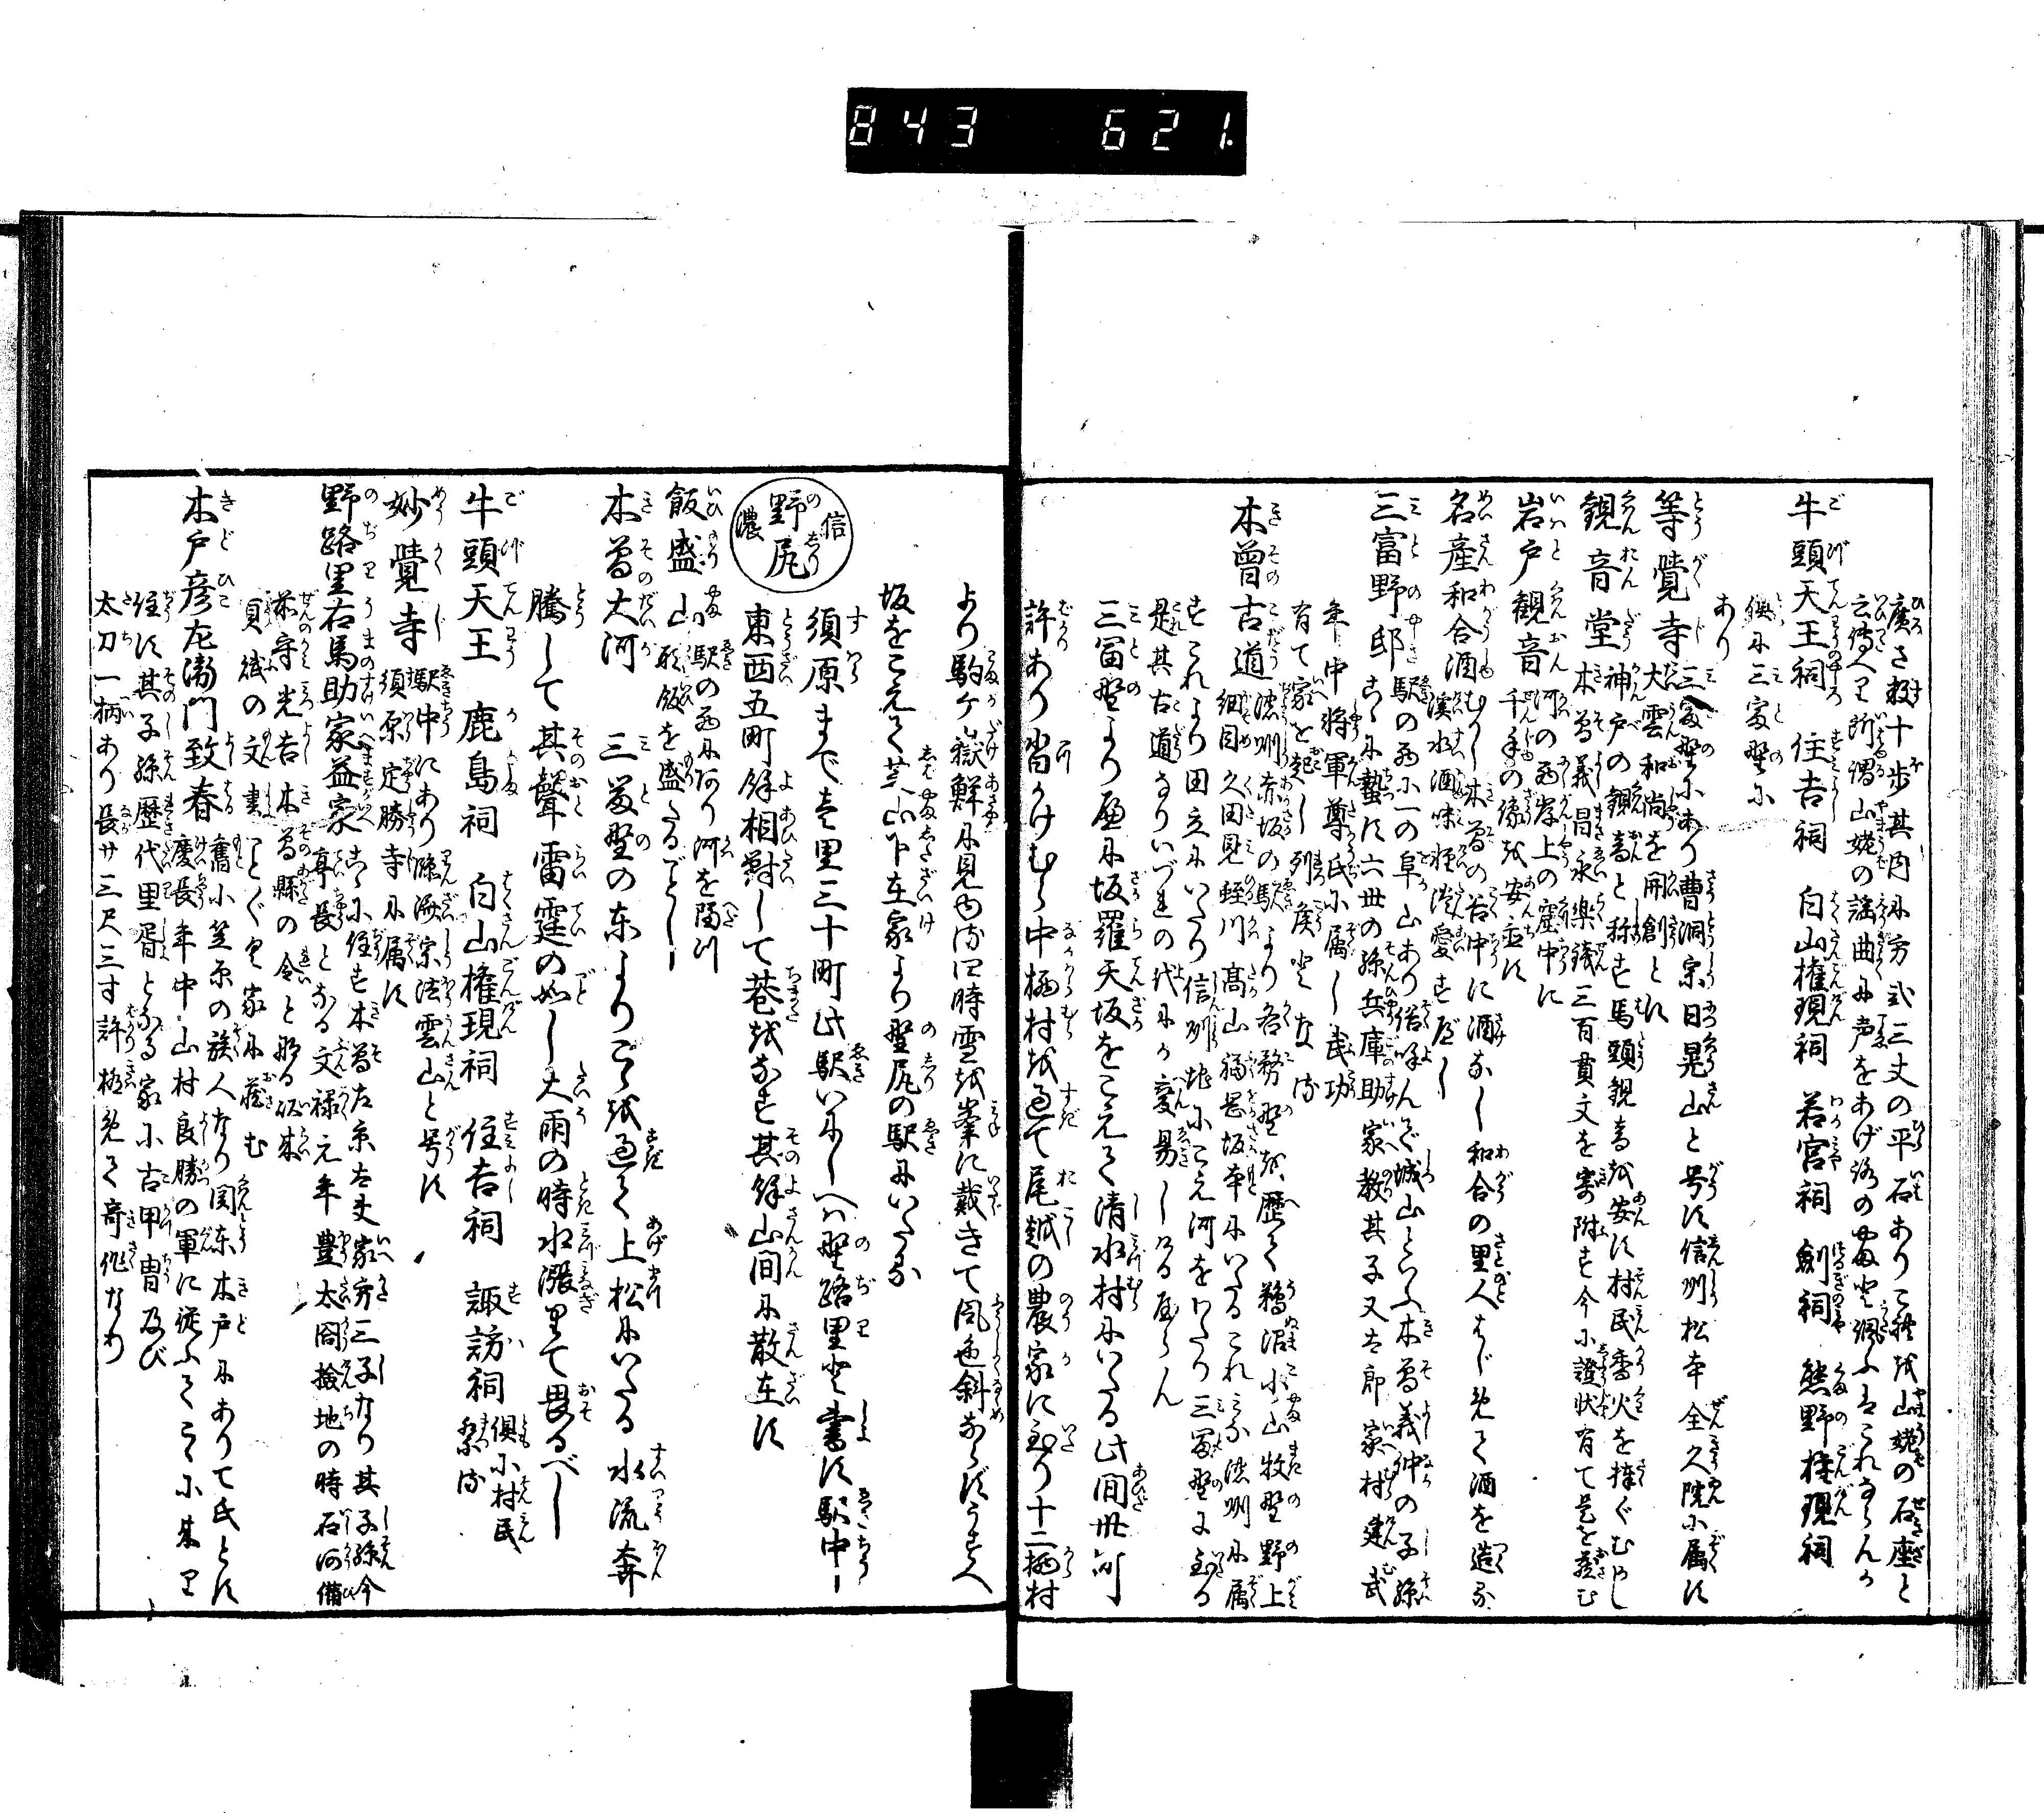 843 621.
廣さ数十歩其内に方弐三丈の平石ありこれを山姥の石座と
云傳へり所謂山姥の謡曲に声をあげ路の
牛頭天王祠 住吉祠 白山権現祠 若宮祠 劍祠 熊野権現祠
倶に三冨野に
あり
等覺寺 三冨野にあり曹洞宗日晃山と号す信州松本全久院に属す
大雲和尚を開創とす
観音堂 神戸の観音と称す馬頭観音を安ず村民香火を捧ぐむかし
木曽義昌永楽銭三百貫文を寄附す今に證状有て是を蔵む
岩戸観音 河の西岸上の窟中に
千手の像を安置す
名産和合酒 むかし木曽の谷中に酒なし和合の里人はじめて酒を造る
渓水酒味軽淡愛すべし
三富野邸 駅の西に一の阜山あり俗呼んで城山といふ木曽義仲の子孫
こゝに蟄す六世の孫兵庫助家教其子又太郎家村建武
年中将軍尊氏に属し武功
有て家を起し列侯となる
木曽古道 濃州赤坂の駅より各務野を歴て鵜沼小山牧野野上
細目久田見蛭川高山福岡坂本にいたるこれみな濃州に属
すこれより田立にいたり信州地にこえ河をわたり三冨野に到る
是其古道なりいづれの代にか変易しける
三冨野より
坂羅天坂をこえて清水村にいたる此間
許あり
中
村を過て尾越の農家に到り十二
村
より駒ヶ嶽鮮に見ゆる四時雪を峯に戴きて風色斜ならず
坂をこえて
在家より野尻の駅にいたる
信濃 野尻
須原まで壱里三十町此駅いにしへハ野路里と書す駅中
東西五町餘相對して巷をなす其餘山間に散在す
飯盛山 駅の西にあり河を隔つ
形飯を盛たるごとし
木曽大河 三冨野の東よりこゝを過て上松にいたる水流奔
騰して其聲雷霆の如し大雨の時水漲りて畏るべし
牛頭天王 鹿島祠 白山権現祠 住吉祠 諏訪祠 倶に村民
祭る
妙覺寺 駅中にあり臨済宗法雲山と号す
須原定勝寺に属す
野路里右馬助家益家 こゝに住す木曽左京太夫家方三子なり其子孫今
亭長となる文禄元年豊太閤撿地の時石河備
前守光吉木曽縣の令と成る
貢賦の文書ことごとく家に蔵む
木戸彦左衛門致春 舊小笠原の族人なり関東木戸にありて氏とす
慶長年中山村良勝の軍に従ふてこゝに来り
住す其子孫歴代里胥となる家に古甲冑及び
太刀一柄あり長サ三尺三寸許極めて奇作なり